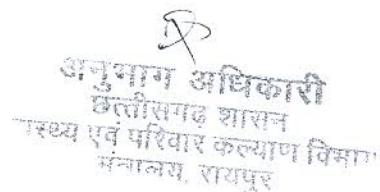 अनुभाग अधिकारी
छत्तीसगढ़ शासन
स्वास्थ्य एवं परिवार कल्याण विभाग
मंत्रालय, रायपुर